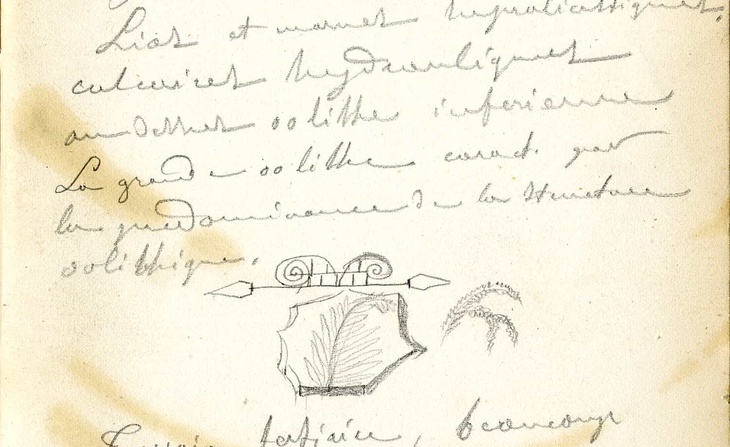 Lias et marnes supraliasiques,
calcaires hydrauliques
au dessus oolithe inférieure
La grande oolithe caract. par
la prédominance de la structure
oolithique.
Terrain tertiaire, beaucoup